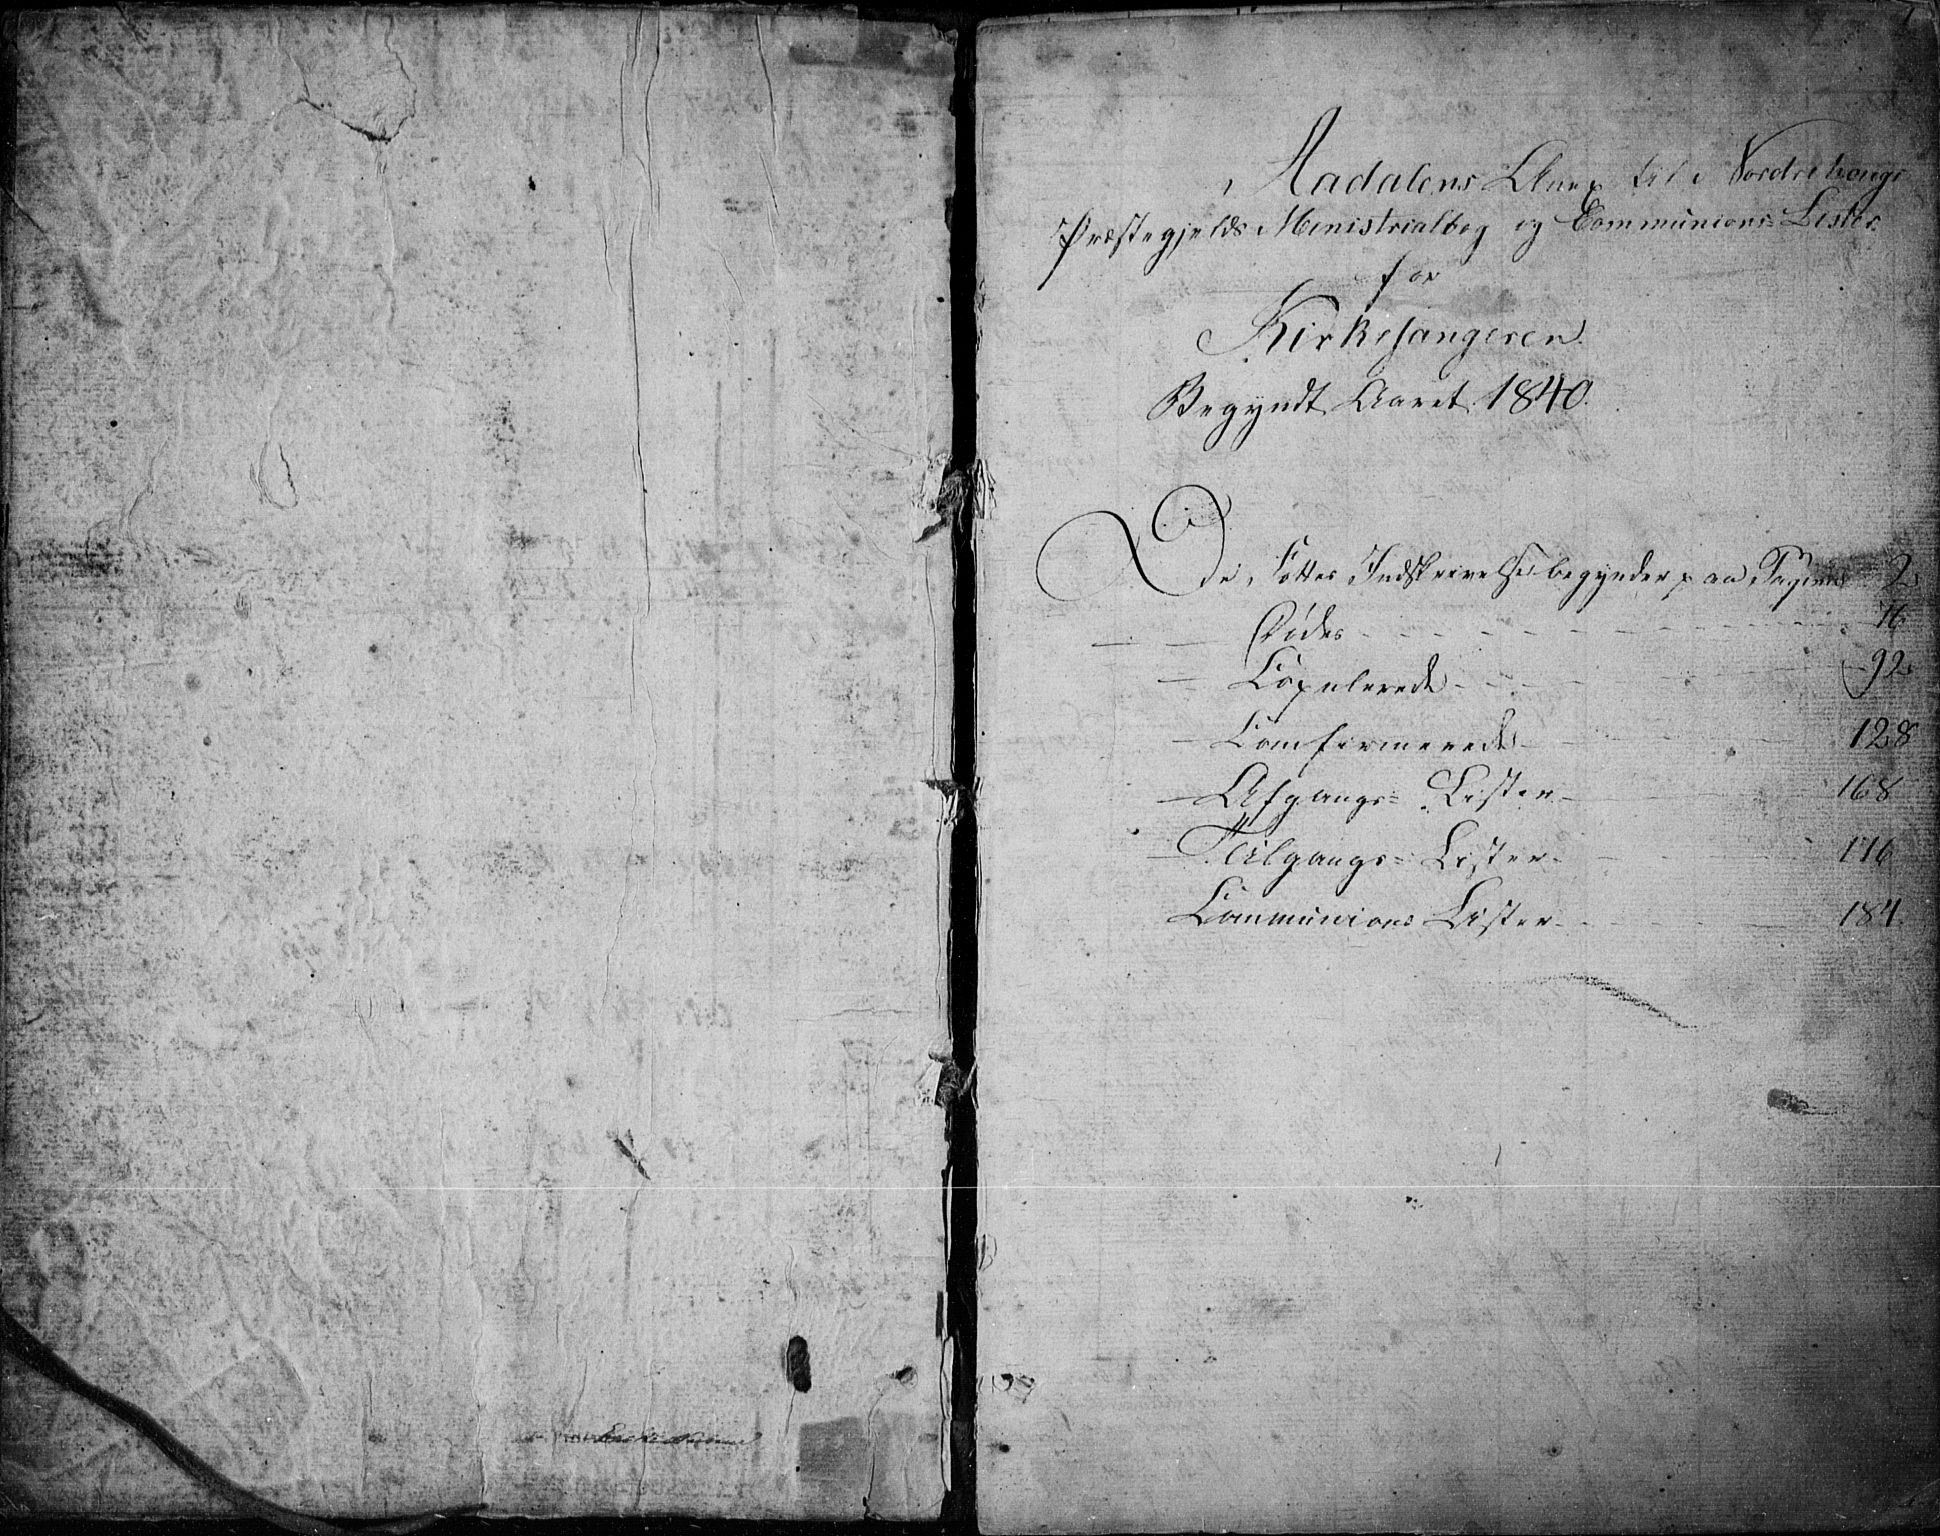 1
Aadalens Anex til Nordrehougs
Præstegjelds Ministrialbog og Communions= Lister
for
Kirkesangeren
Begyndt Aaret 1840.
De Føttes Indskrivelse begynder paa Pagina 2
— — Dødes - - - - - 76
— Copulerede - - - 92
— Comfirmerede - - - 128
— Afgangs= Lister - - - 168
— Tilgangs= Lister - - - 176
Communions Lister - - - 184